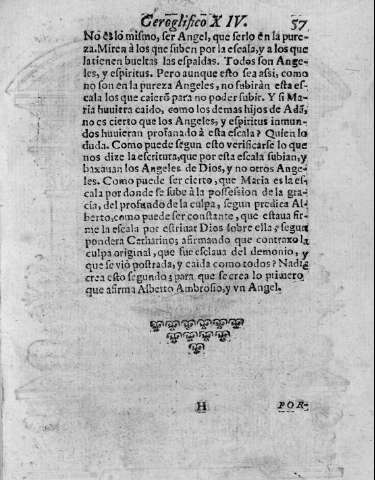 Geroglifico XIV. 57
No es lo mismo, ser Angel, que serlo en la pure-
za. Miren à los que suben por la escala, y a los que
la tienen bueltas las espaldas. Todos son Ange-
les, y espiritus. Pero aunque esto sea assi, como
no son en la pureza Angeles, no subiràn esta es-
cala los que caierõ para no poder subir. Y si Ma-
ria huviera caido, como los demas hijos de Adã,
no es cierto que los Angeles, y espiritus inmun-
dos huvieran profanado à esta escala? Quien lo
duda. Como puede segun esto verificarse lo que
nos dize la escritura, que por esta escala subian, y
baxavan los Angeles de Dios, y no otros Ange-
les. Como puede ser cierto, que Maria es la es-
cala por donde se sube à la possession de la gra-
cia, del profundo de la culpa, segun predica Al-
berto, como puede ser constante, que estava fir-
me la escala por estrivar Dios sobre ella, segun
pondera Catharino; afirmando que contraxo la
culpa original, que fue esclava del demonio, y
que se viò postrada, y caida como todos? Nadie
crea esto segundo; para que se crea lo primero
que afirma Alberto Ambrosio, y vn Angel.
H POR-